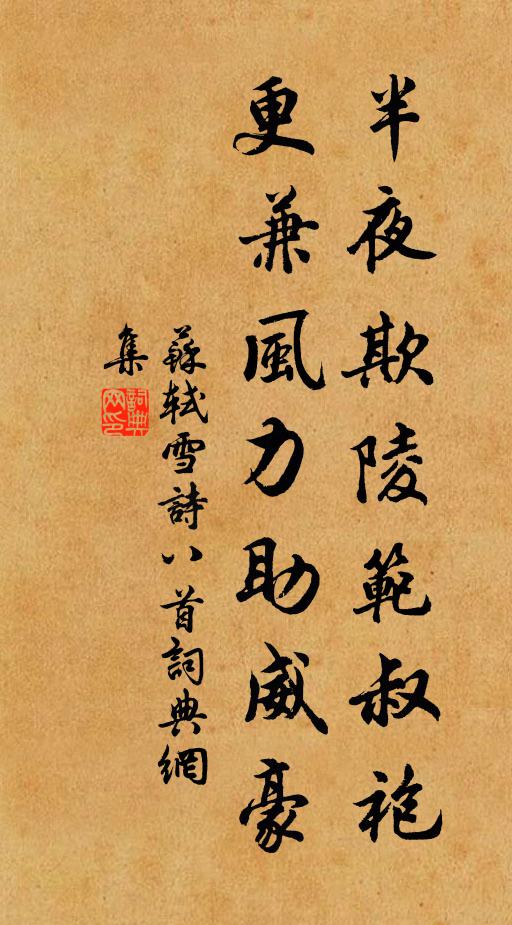 半夜欺陵範叔袍
更兼風力助威豪
蘇軾雪詩八首詞典網
集
詞典
网印